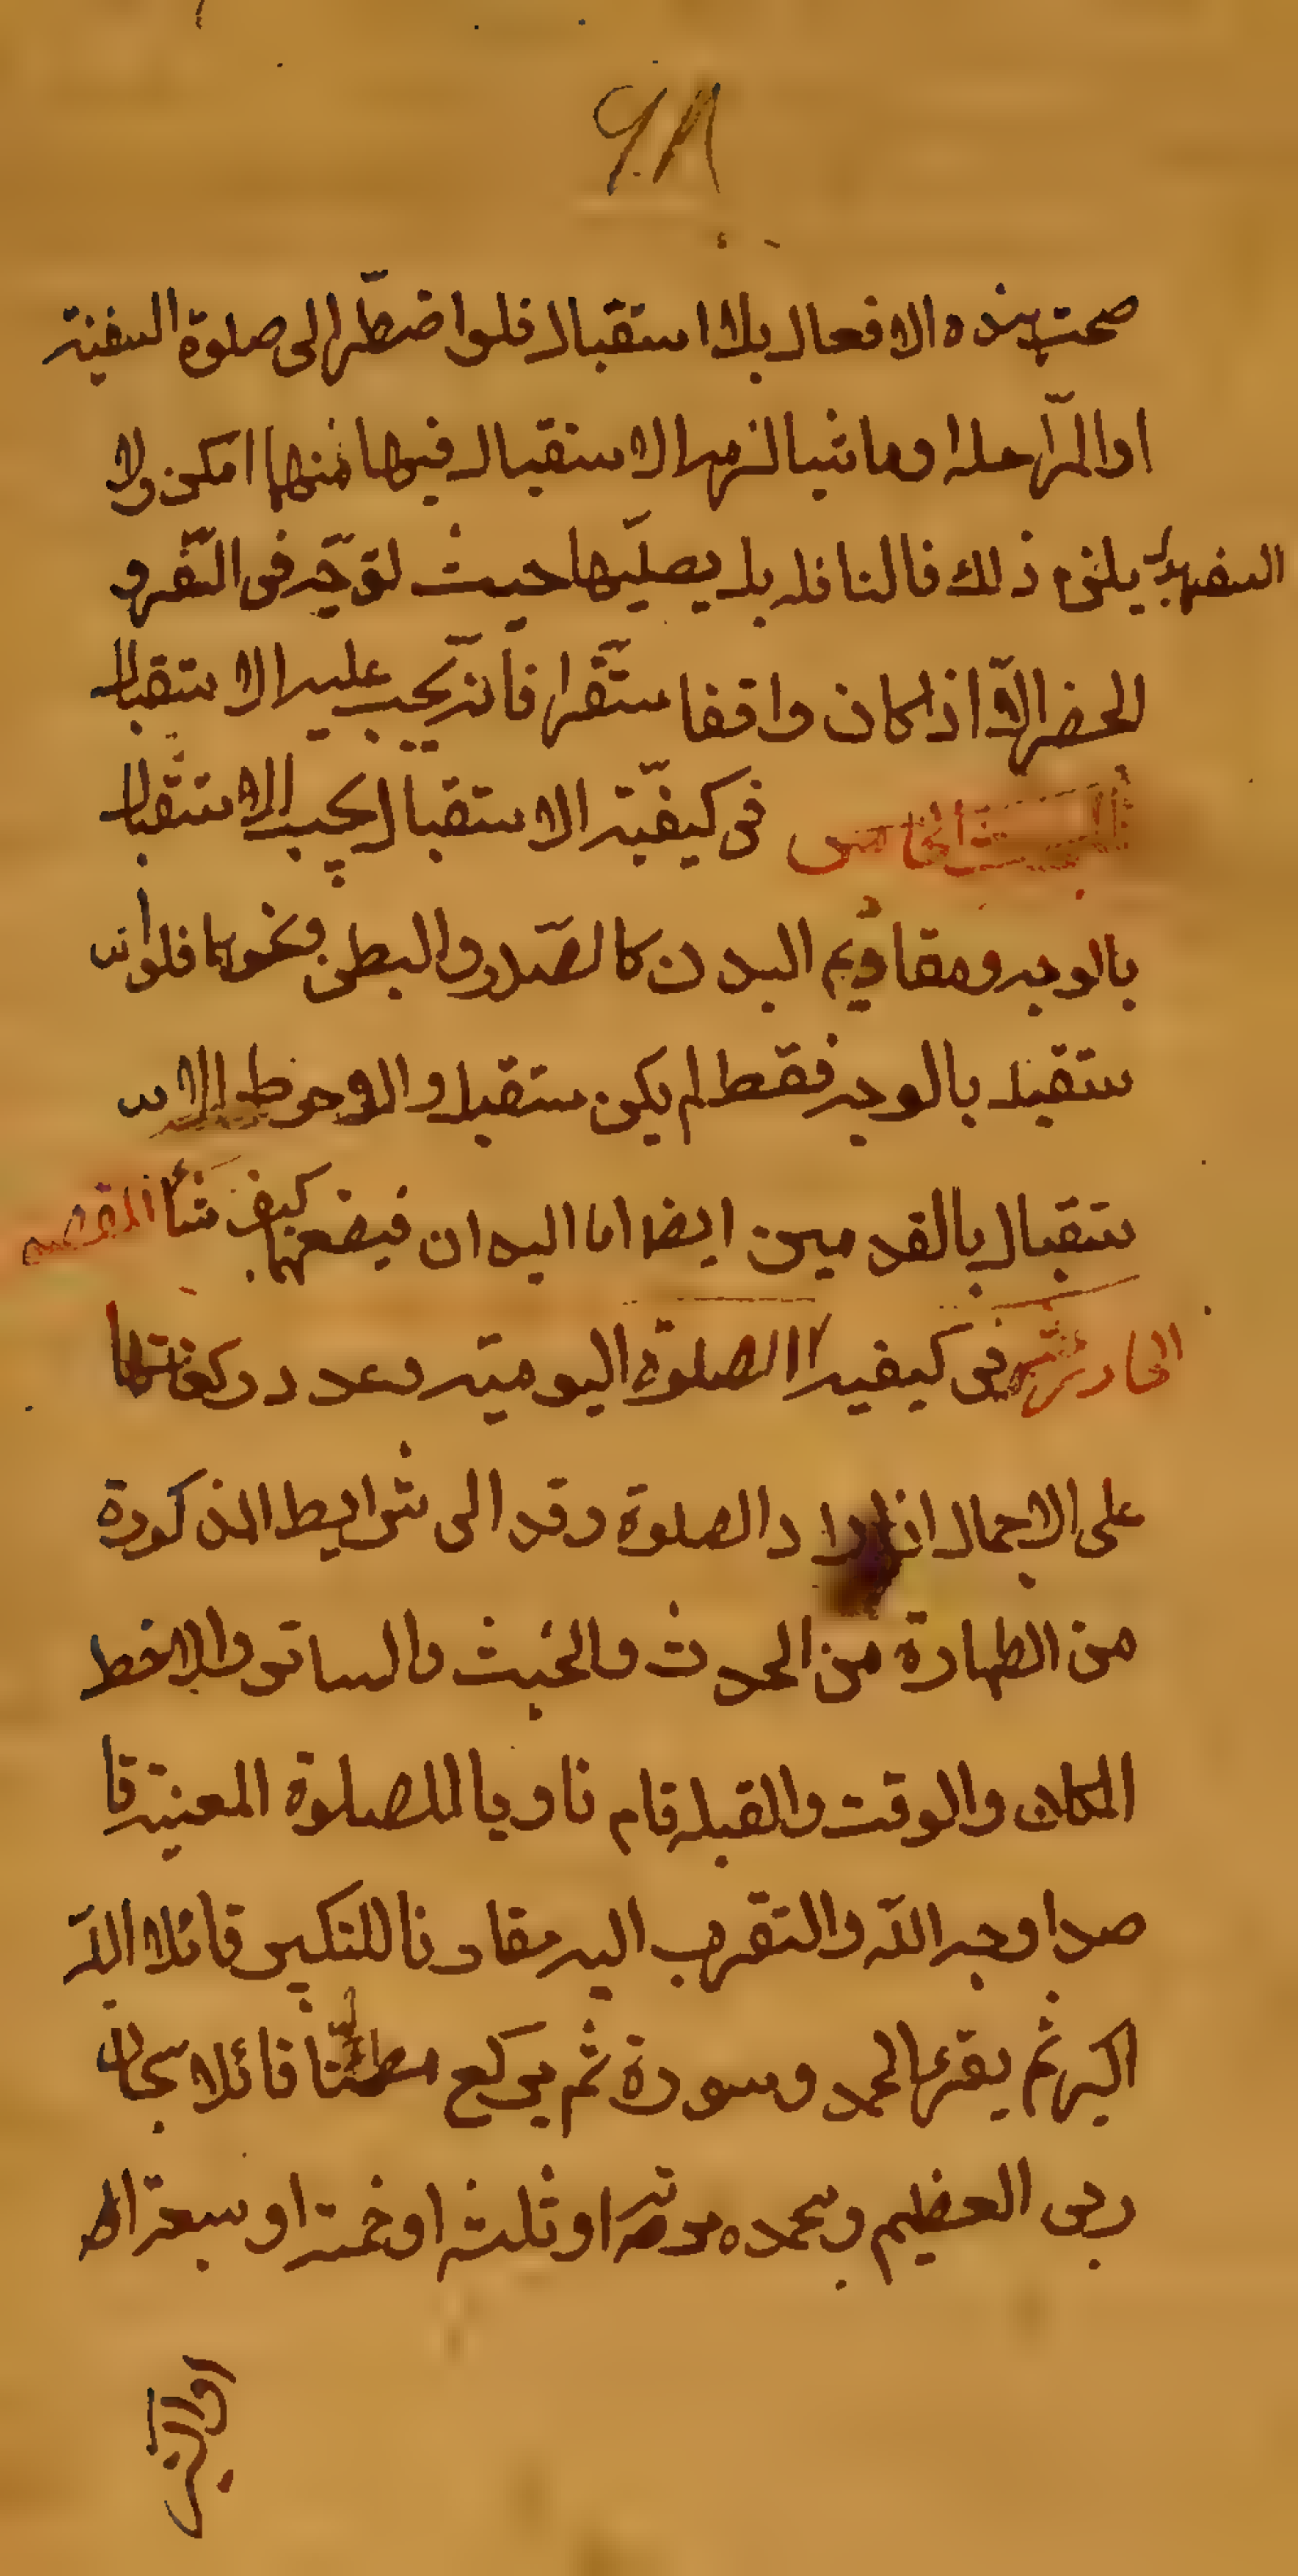 ٩٨
صحت هذه الافعال بلا استقبال فلو اضطر الى صلوة السفينة
او الراحلة او ماشيا لزمه الاستقبال فيها مهما امكن ولا
يلزم ذلك فالنافلة بل يصليها حيث توجه فى السفر و
الحضر الا اذا كان واقفا مستقرا فانه يجب عليه الاستقبال
المبحث الخامس فى كيفية الاستقبال يجب الاستقبال
بالوجه ومقاديم البدن كالصدر والبطن ونحوها فلو اس
ستقبل بالوجه فقط لم يكن مستقبلا والاحوط الاس
ستقبال بالقدمين ايضا اما اليدان فيضعهما كيف شأ المقصد
الحاد عشر فى كيفية الصلوة اليومية وعدد ركعاتها
على الاجمال اذا اراد الصلوة وقد الى شرايط المذكورة
من الطهارة من الحدث والخبث والساتر والاخط
المكان والوقت والقبلة قام ناويا للصلوة المعينة قا
صدا وجه اللّه والتقرب اليه مقارنا للتكبير قائلا اللّه
اكبر ثم يقرء الحمد وسورة ثم يركع مطمئنا قائلا سبحان
ربى العظيم وبحمده مرة او ثلثة او خمسة او سبعة